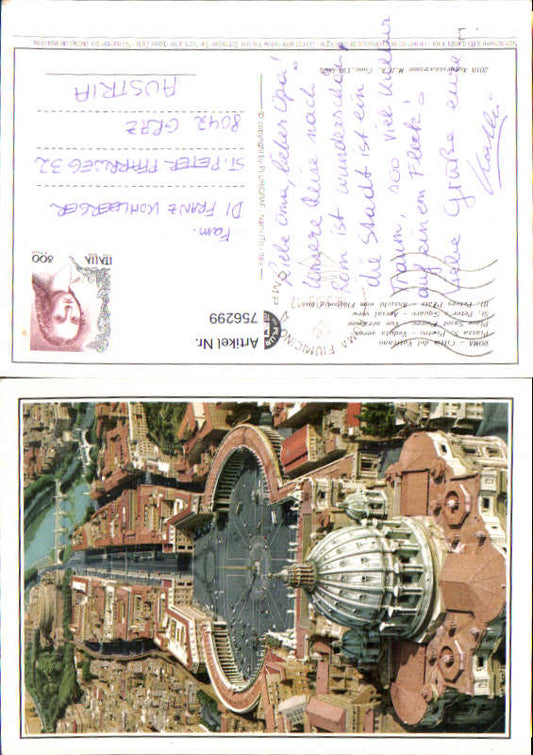 Liebe Oma, lieber Opa!
Unsere Reise nach
Rom ist wunderschön,
die Stadt ist ein
Traum, soo viel Kultur
auf einem Fleck!
Liebe Grüße eure
Fam.
DI FRANZ KOHLBERGER
ST. PETER PFARRWEG 32
8042 GRAZ
AUSTRIA
ITALIA
800
Artikel Nr.
756299
ROMA - Città del Vaticano
Piazza S. Pietro - Veduta aerea
Place Saint Pierre - Vue aérienne
St. Peter's Square - Aerial view
St. Peters Platz - Ansicht vom Flugzeug aus
ROMA FIUMICINO